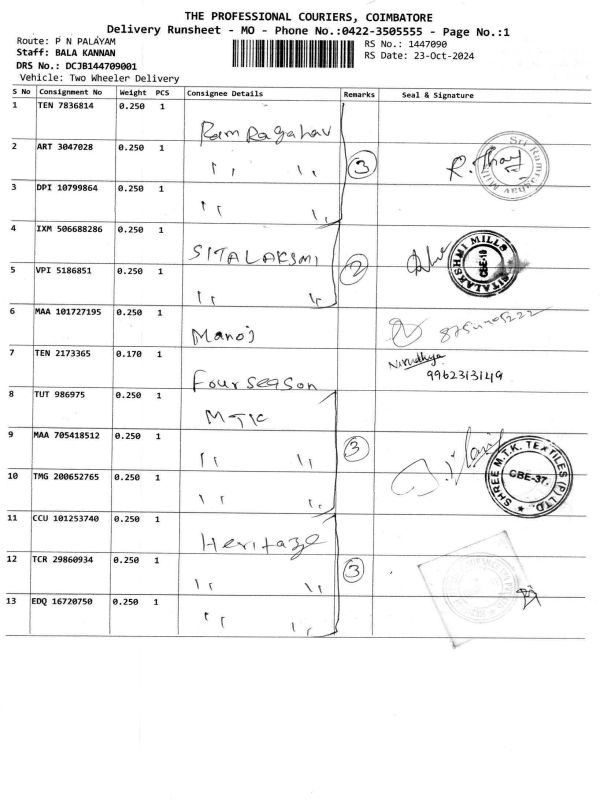 THE PROFESSIONAL COURIERS, COIMBATORE
Delivery Runsheet - MO - Phone No.:0422-3505555 - Page No.:1
Route: P N PALAYAM
RS No.: 1447090
Staff: BALA KANNAN
RS Date: 23-Oct-2024
DRS No.: DCJB144709001
Vehicle: Two Wheeler Delivery
S No Consignment No Weight PCS Consignee Details Remarks Seal & Signature
1 TEN 7836814 0.250 1 Ram Ragahav
2 ART 3047028 0.250 1 " " 3 Sri Ramraghav Mills
3 DPI 10799864 0.250 1 " "
4 IXM 506688286 0.250 1 SITALAKSMI SITALAKSHMI MILLS CBE-18
5 VPI 5186851 0.250 1 " " 2
6 MAA 101727195 0.250 1 Manoj
7 TEN 2173365 0.170 1 Four season Nirudhya 9962313149
8 TUT 986975 0.250 1 MTK
9 MAA 705418512 0.250 1 " " 3 SHREE M.T.K. TEXTILES (P) LTD. CBE-37.
10 TMG 200652765 0.250 1 " "
11 CCU 101253740 0.250 1 Heritage
12 TCR 29860934 0.250 1 " " 3
13 EDQ 16720750 0.250 1 " "